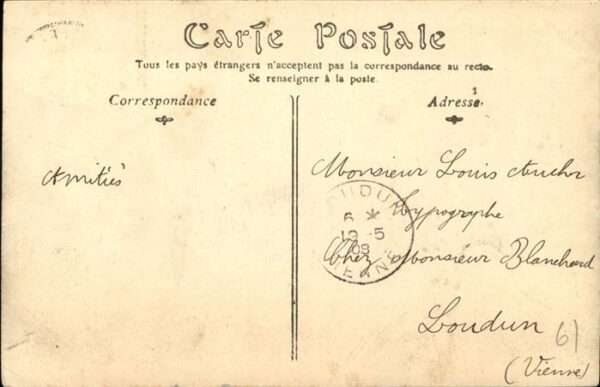 Carte Postale
Tous les pays étrangers n'acceptent pas la correspondance au recto.
Se renseigner à la poste.
Correspondance
Adresse
Amitiés
Monsieur Louis
typographe
Chez Monsieur Blanchard
Loudun
(Vienne)
6)
LOUDUN
6 *
19 -5
09
VIENNE